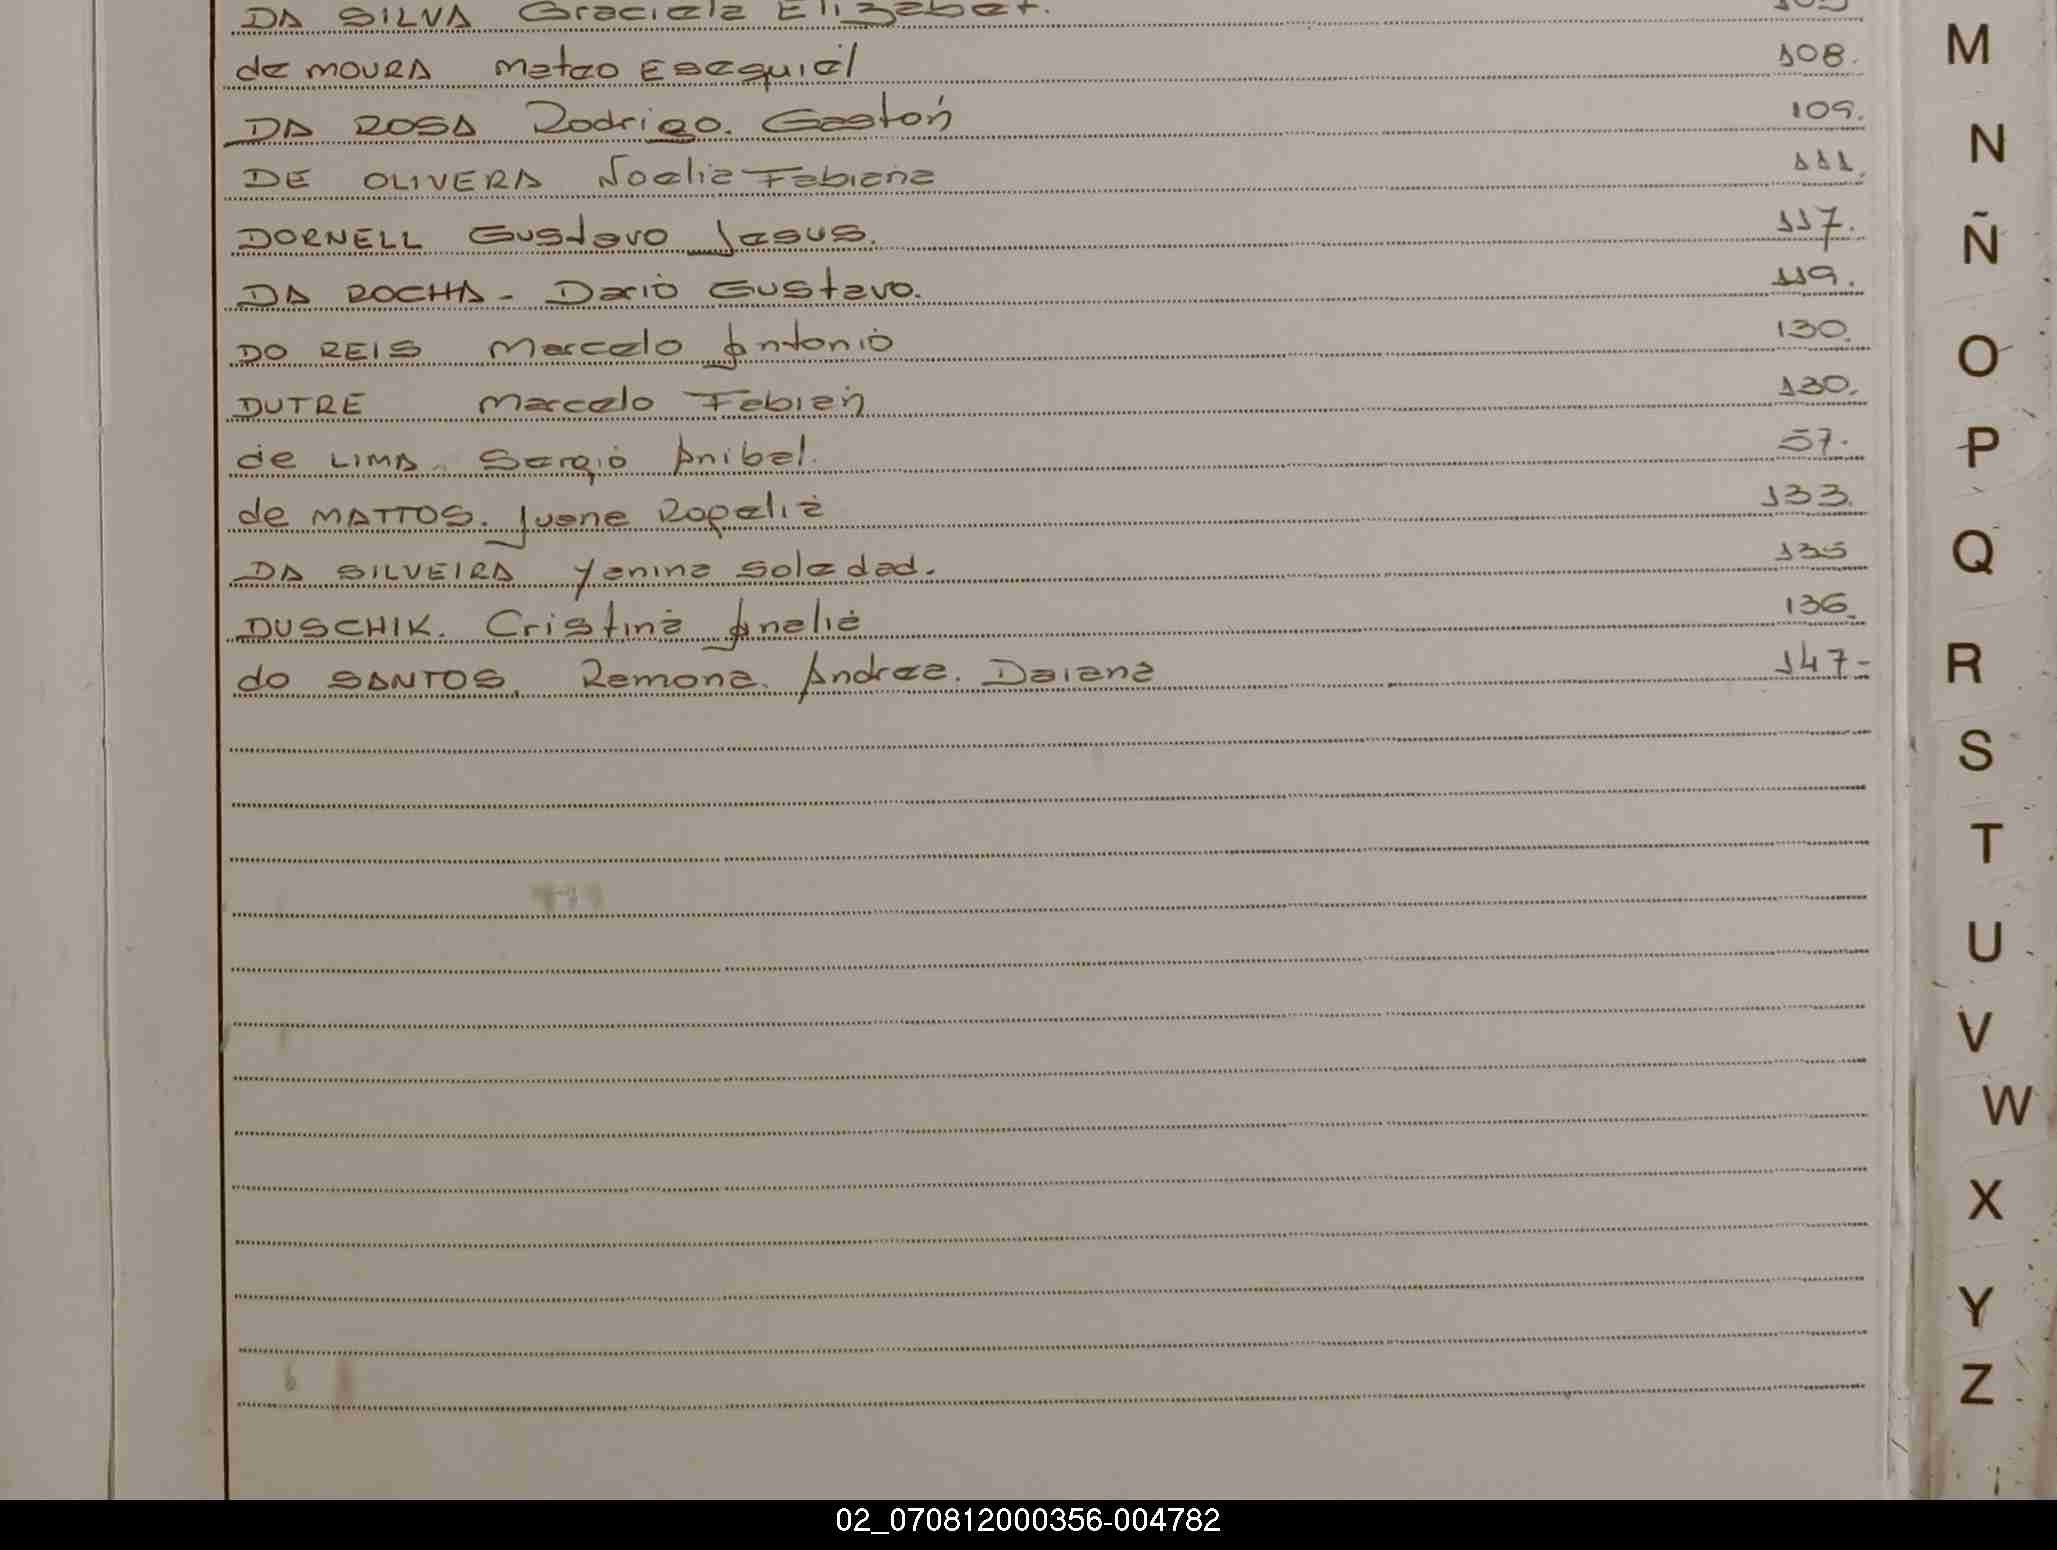 DA SILVA Graciela Elizabet.
de MOURA Mateo Esequiel 108.
DA ROSA Rodrigo. Gastón 109.
DE OLIVERA Noelia Fabiana 111.
DORNELL Gustavo Jesus. 117.
DA ROCHA - Dario Gustavo. 119.
DO REIS Marcelo Antonio 130.
DUTRE Marcelo Fabián 130.
de LIMA Sergio Anibal. 57.
de MATTOS. Juana Rogelia 133.
DA SILVEIRA Yanina Soledad. 135
DUSCHIK. Cristina Analia 136.
do SANTOS, Ramona. Andrea. Daiana 147-
M
N
Ñ
O
P
Q
R
S
T
U
V
W
X
Y
Z
02_070812000356-004782